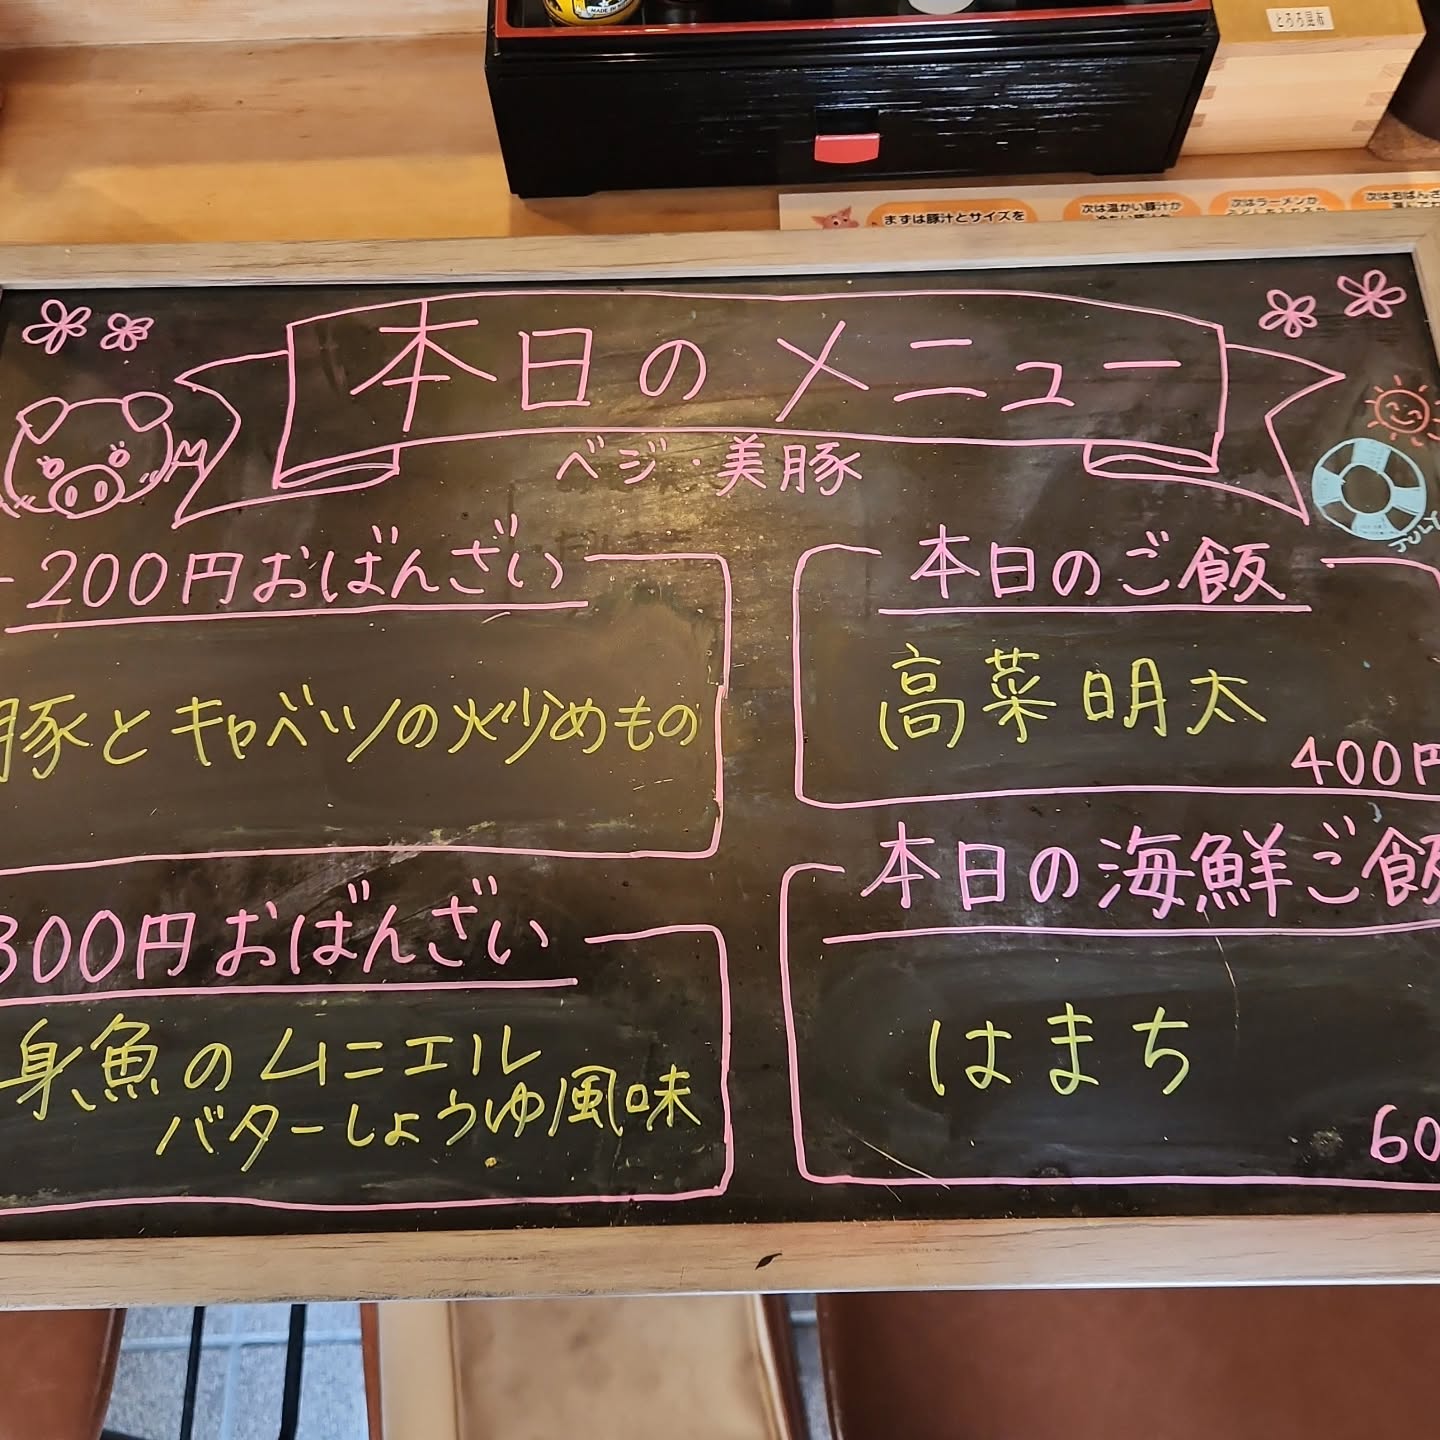 MADE IN
とろろ昆布
まずは豚汁とサイズを
次は温かい豚汁か
次はラーメンか
次はおばんざ
本日のメニュー
ベジ・美豚
JULY
200円おばんざい
豚とキャベツの炒めもの
本日のご飯
高菜明太
400円
300円おばんざい
身魚のムニエル
バターしょうゆ風味
本日の海鮮ご飯
はまち
60